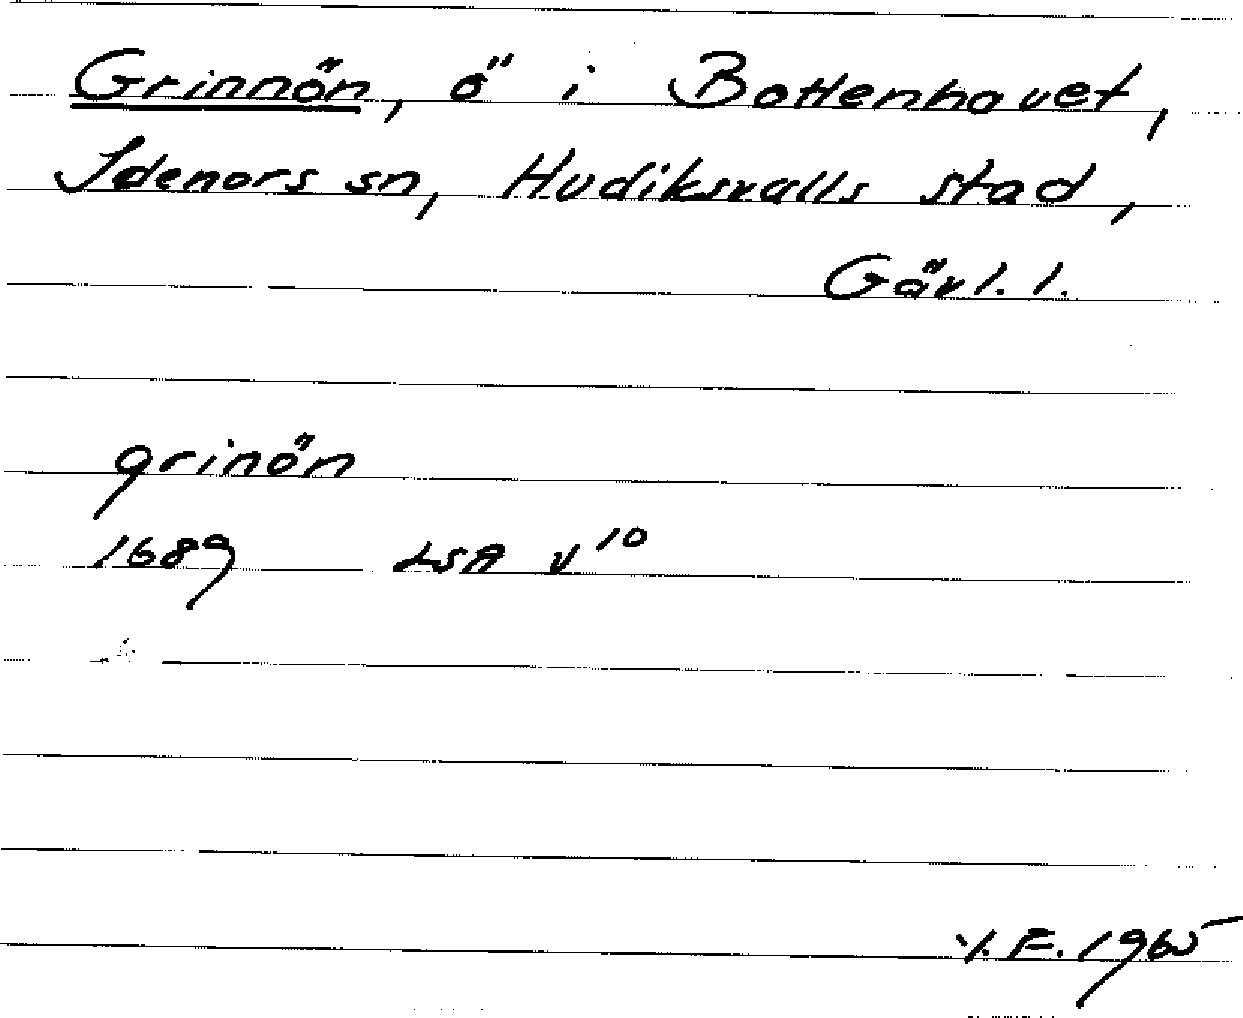 Grinnön, ö i Bottenhavet,
Idenors sn, Hudiksvalls stad,
Gävl. l.
grinön
1689 LSA v 10
Y.F. 1965